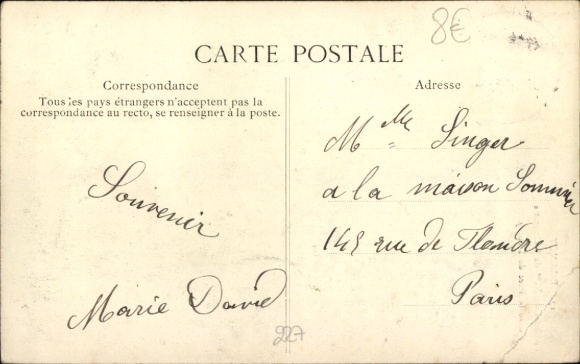 8€
CARTE POSTALE
Correspondance
Tous les pays étrangers n'acceptent pas la
correspondance au recto, se renseigner à la poste.
Souvenir
Marie David
Adresse
Mlle Singer
a la maison
145 rue de Flandre
Paris
227